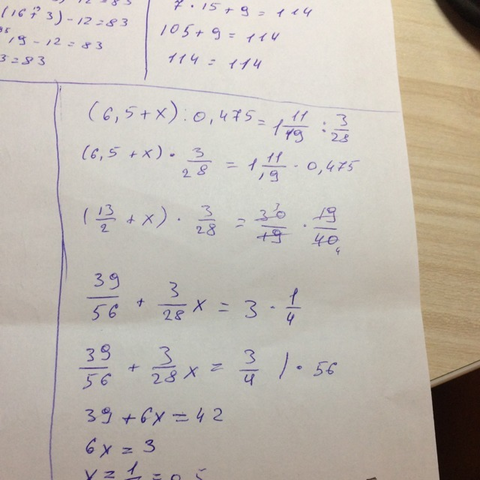 (16+3)-12=83
19-12=83
=83
7·15+9=114
105+9=114
114=114
(6,5+x):0,475=1 11/19 : 3/28
(6,5+x)·3/28=1 11/19·0,475
(13/2+x)·3/28=30/19·19/40
39/56+3/28x=3·1/4
39/56+3/28x=3/4 )·56
39+6x=42
6x=3